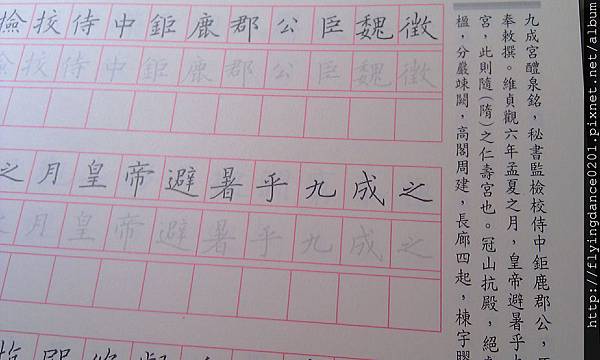 九成宮醴泉銘，秘書監檢校侍中鉅鹿郡公，
奉敕撰。維貞觀六年孟夏之月，皇帝避暑乎
宮，此則隨（隋）之仁壽宮也。冠山抗殿，絕
楹，分巖竦闕，高閣周建，長廊四起，棟宇膠
撿挍侍中鉅鹿郡公臣魏徵
撿挍侍中鉅鹿郡公臣魏徵
之月皇帝避暑乎九成之
之月皇帝避暑乎九成之
http://flyingdance0201.pixnet.net/album